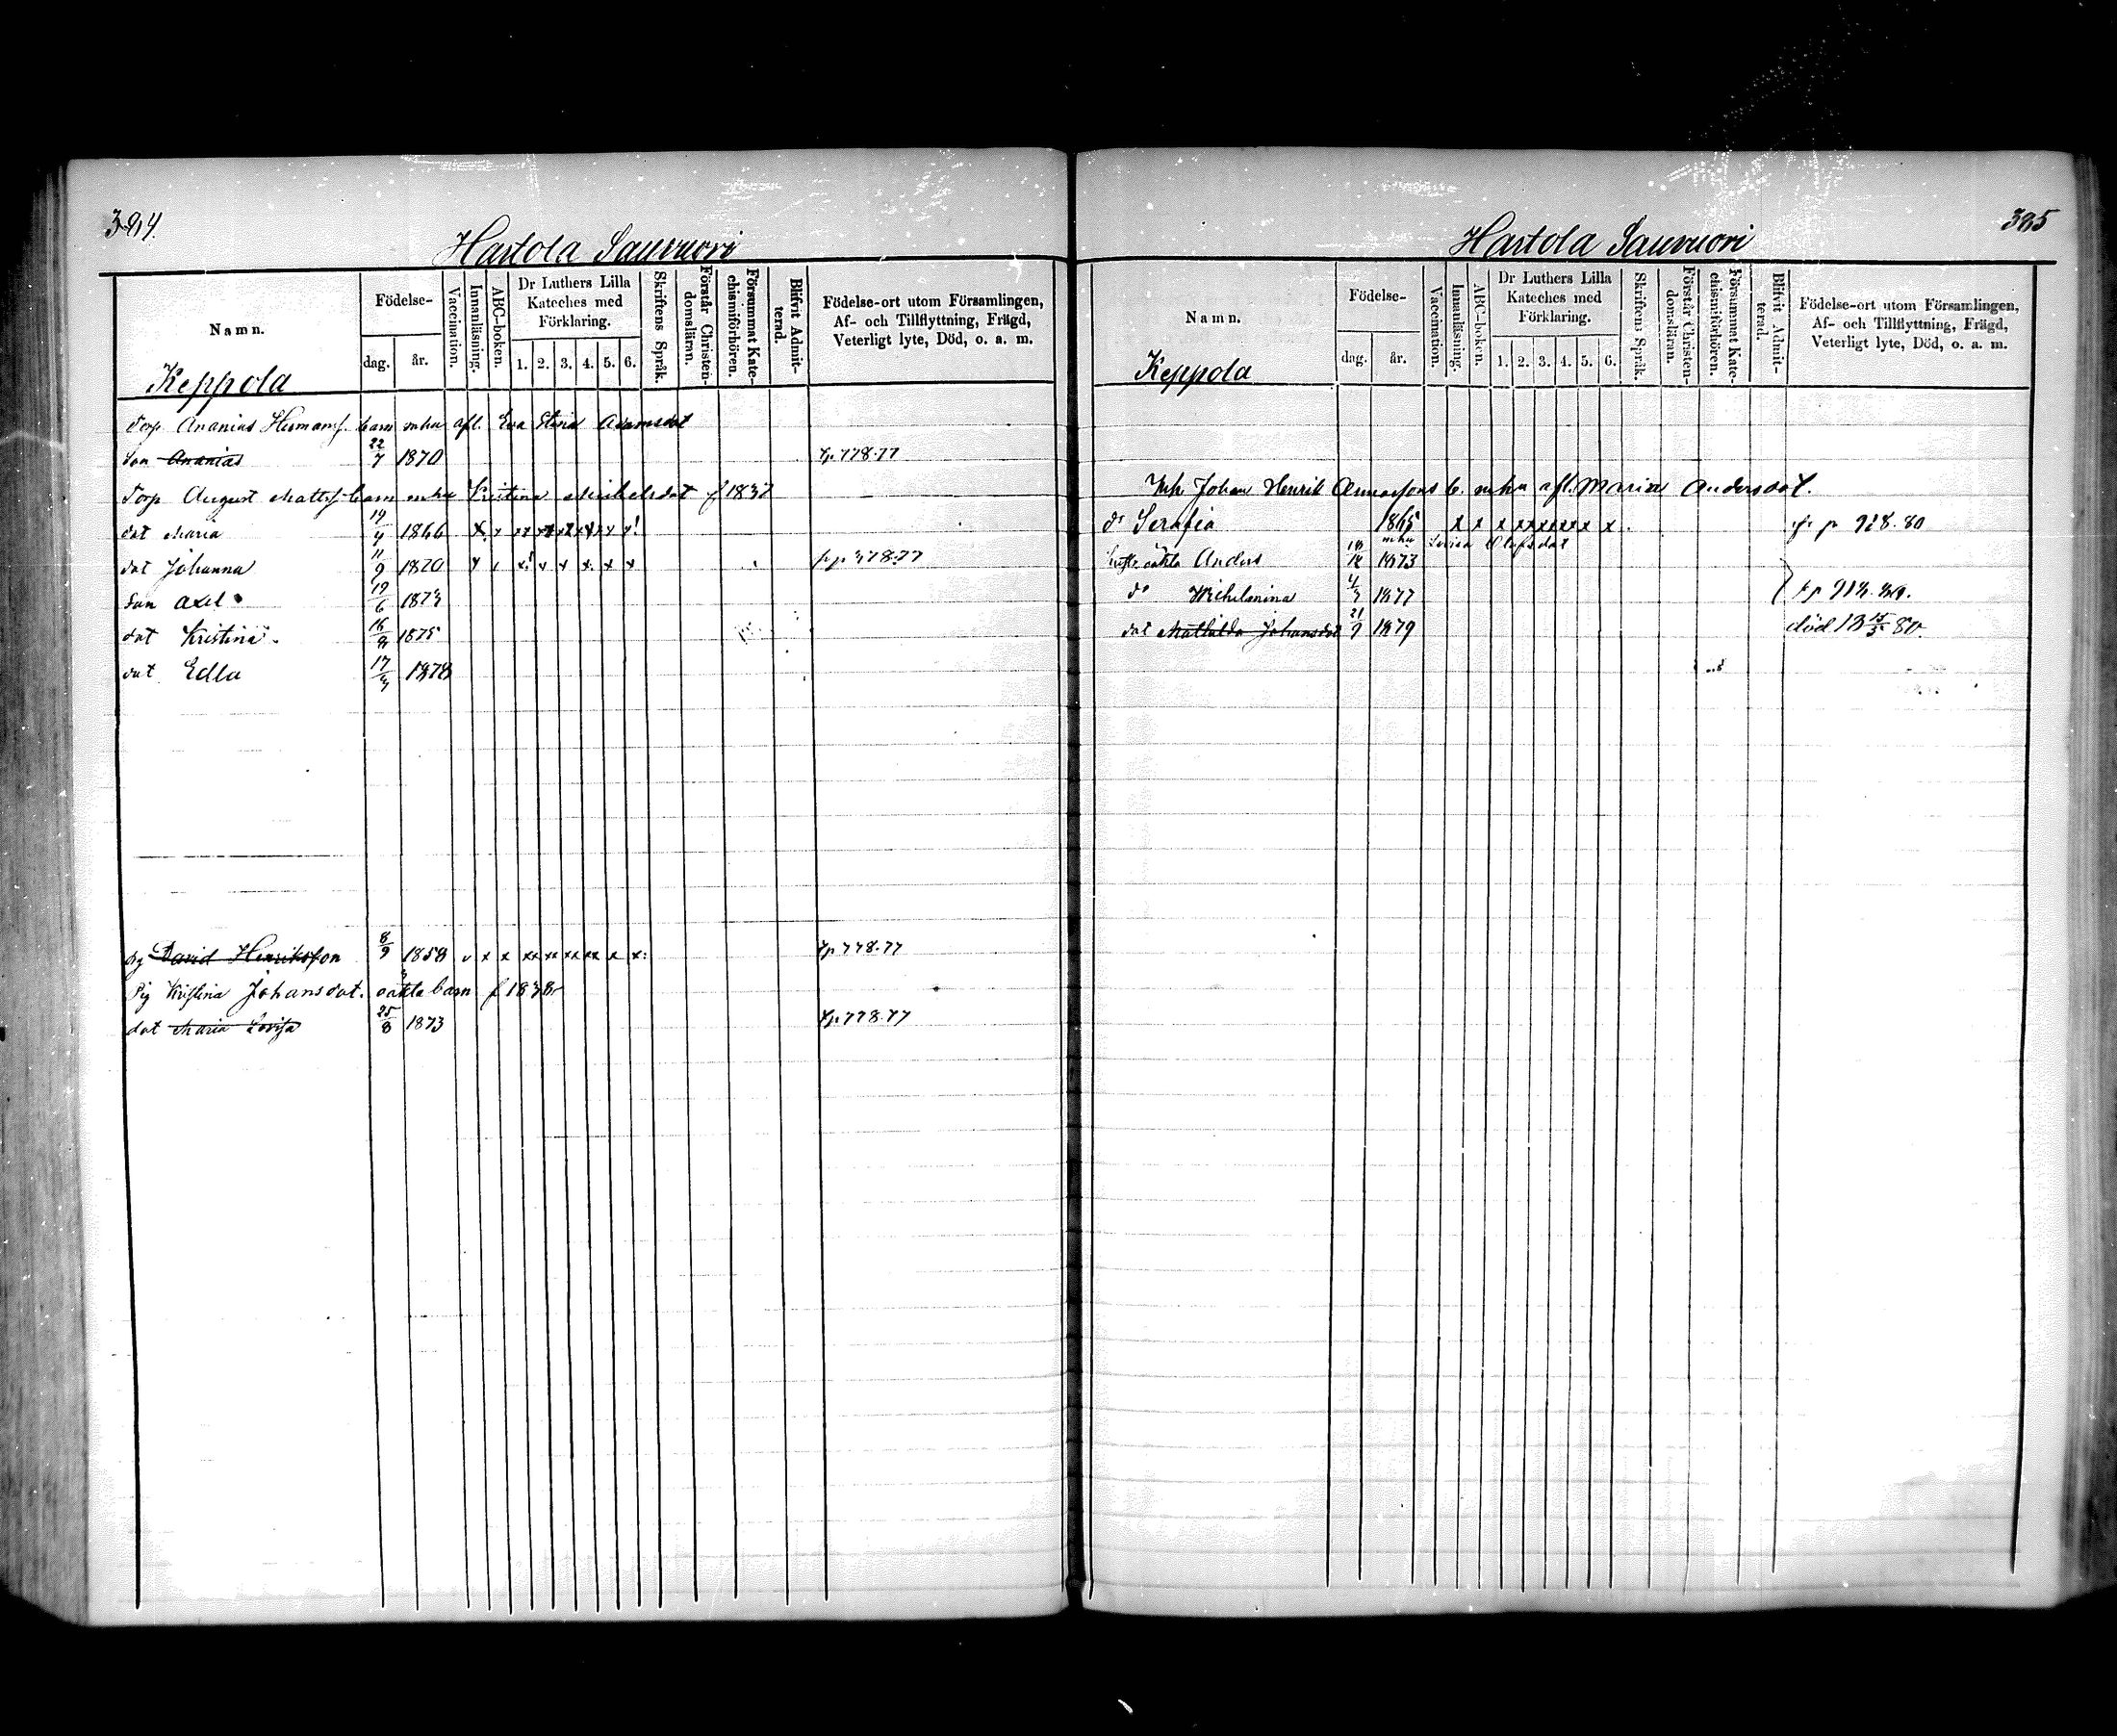 384.
Hartola Sauvuori
Namn.
Födelse-
dag. år.
Vaccination.
Innanläsning.
ABC-boken.
Dr Luthers Lilla Kateches med Förklaring.
1. 2. 3. 4. 5. 6.
Skriftens Språk.
Förstår Christendomsläran.
Försummat Katechismiförhören.
Blifvit Admitterad.
Födelse-ort utom Församlingen,
Af- och Tillflyttning, Frägd,
Veterligt lyte, Död, o. a. m.
Keppola
Torp Ananias Hermansf. barn mhu afl. Eva Stina Adamsdot
Son Ananias 22/7 1870 778.77
Torp August Mattsf. barn mhu Kristina Mikelsdot f 1837
dot Maria 19/4 1866 x x xx xx xx x x
dot Johanna 11/9 1870 x x x x x x 778.77
Son Axel 19/6 1873
dot Kristina 16/8 1875
dot Edla 17/3 1878
dg David Henriksson 8/9 1859 v x x xx xx xx xx x x: 778.77
Pig Kristina Johansdot. oäkta barn f 1838
dot Maria Lovisa 25/8 1873 778.77
385
Hartola Sauvuori
Namn.
Födelse-
dag. år.
Vaccination.
Innanläsning.
ABC-boken.
Dr Luthers Lilla Kateches med Förklaring.
1. 2. 3. 4. 5. 6.
Skriftens Språk.
Förstår Christendomsläran.
Försummat Katechismiförhören.
Blifvit Admitterad.
Födelse-ort utom Församlingen,
Af- och Tillflyttning, Frägd,
Veterligt lyte, Död, o. a. m.
Keppola
Johan Henrik b. mhu afl. Maria Andersdot.
do Serafia 1865 x x x xx xx xx x x. p 928.80
mhu Lovisa Olofsdot
oäkta Anders 18/12 1873
do Wilhelmina 4/3 1877
dot Mathilda Johansdot 21/9 1879 död 13 15/5 80.